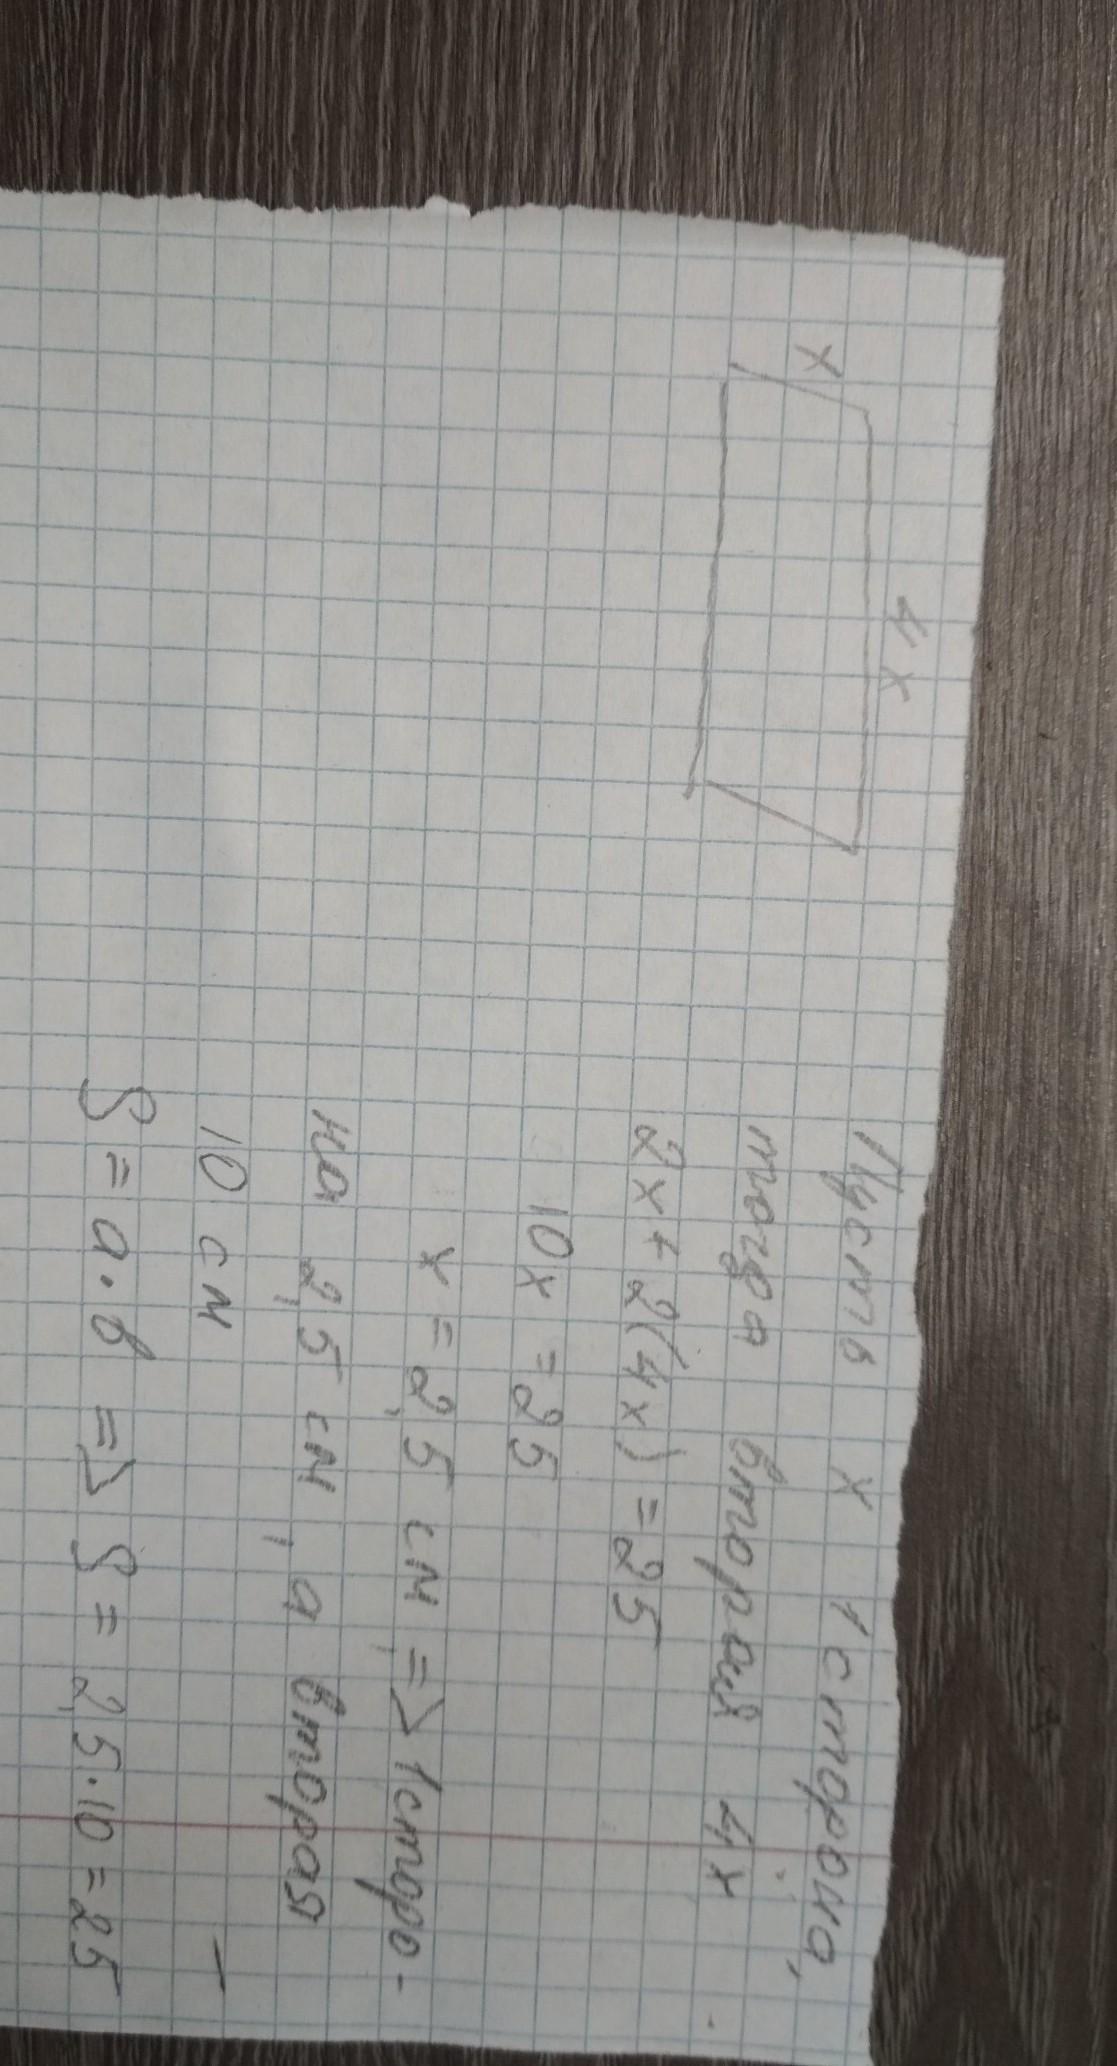 x
4x
Пусть x 1 сторона,
тогда вторая 4x
2x+2(4x)=25
10x=25
x=2,5 см,=> 1 сторо-
на 2,5 см, а вторая -
10 см
S=a·b => S=2,5·10=25